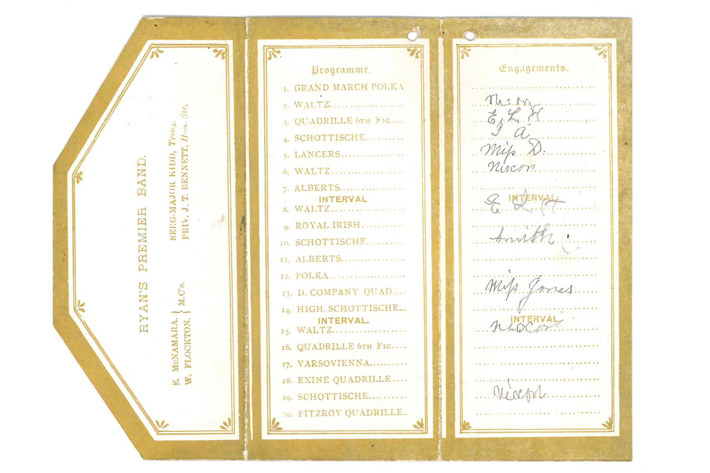 RYAN'S PREMIER BAND.
E. McNAMARA, } M.C's.
W. FLOCKTON, }
SERG-MAJOR KIDD, Treas.
PRIV. J. T. BENNETT, Hon. Sec.
Programme.
1. GRAND MARCH POLKA
2. WALTZ
3. QUADRILLE 6TH FIG
4. SCHOTTISCHE
5. LANCERS
6. WALTZ
7. ALBERTS
INTERVAL
8. WALTZ
9. ROYAL IRISH
10. SCHOTTISCHE
11. ALBERTS
12. POLKA
13. D. COMPANY QUAD
14. HIGH. SCHOTTISCHE
INTERVAL.
15. WALTZ
16. QUADRILLE 6TH FIG
17. VARSOVIENNA
18. EXINE QUADRILLE
19. SCHOTTISCHE
20. FITZROY QUADRILLE
Engagements.
E. L. H
A
Miss D.
Nixon
INTERVAL
E L H
Smith
Miss Jones
INTERVAL
Nixon
Nixon